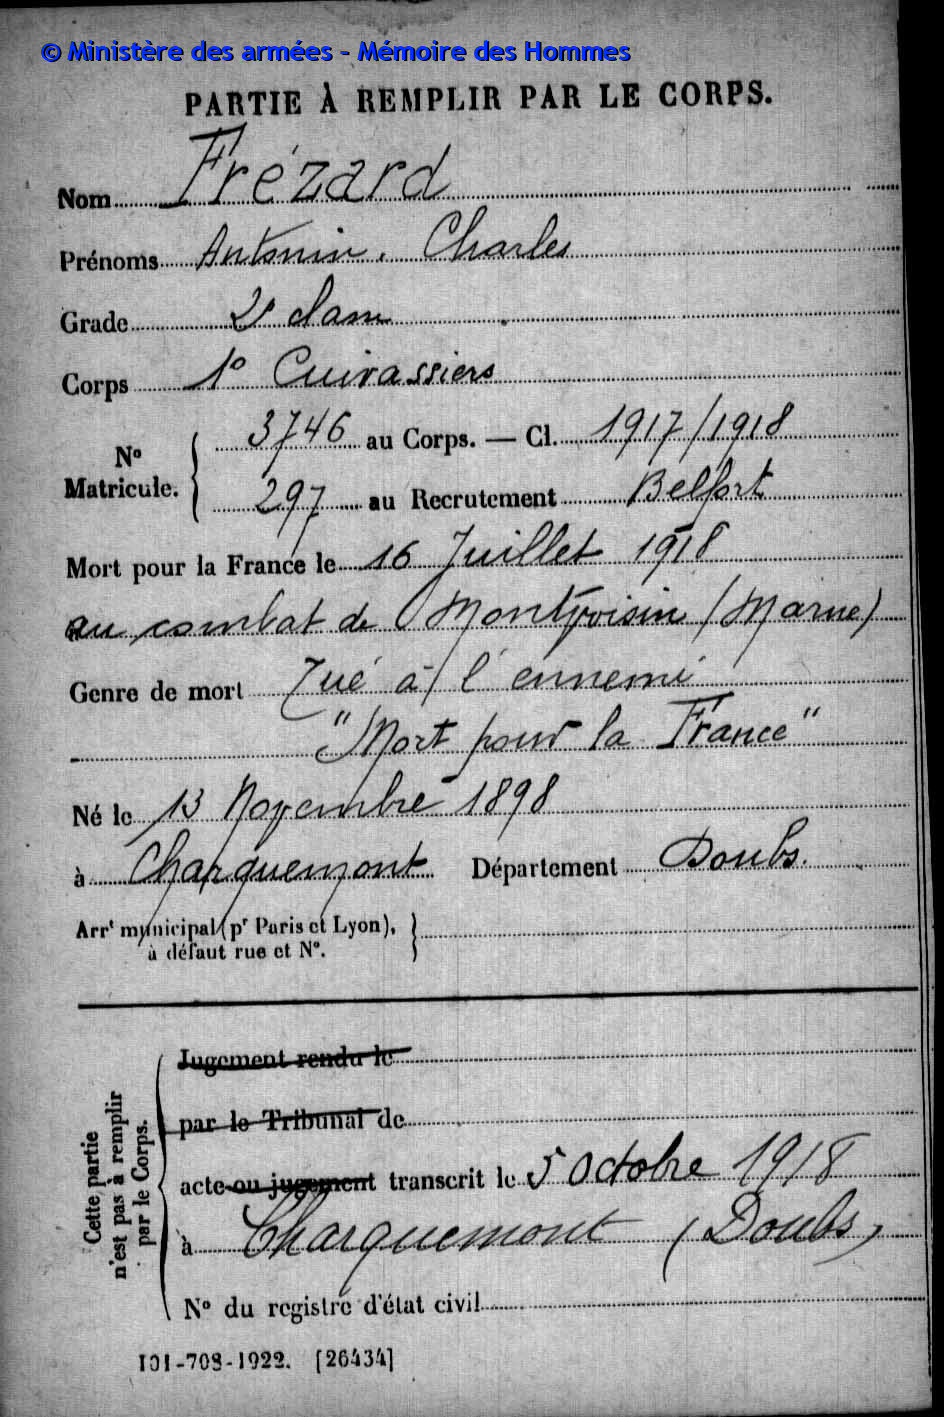 © Ministère des armées - Mémoire des Hommes
PARTIE À REMPLIR PAR LE CORPS.
Nom Frézard
Prénoms Antonin. Charles
Grade 2e classe
Corps 1o Cuirassiers
No Matricule. { 3746 au Corps. — Cl. 1917/1918
297 au Recrutement Belfort
Mort pour la France le 16 Juillet 1918
au combat de Montvoisin (Marne)
Genre de mort Tué à l'ennemi
"Mort pour la France"
Né le 13 Novembre 1898
à Charquemont Département Doubs.
Arrt municipal (pr Paris et Lyon), }
à défaut rue et No.
Cette partie
n'est pas à remplir
par le Corps.
Jugement rendu le
par le Tribunal de
acte ou jugement transcrit le 5 Octobre 1918
à Charquemont (Doubs)
No du registre d'état civil
101-708-1922. [26434]